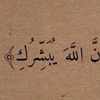 نَّ اللَّهَ يُبَشِّرُكِ ﴾